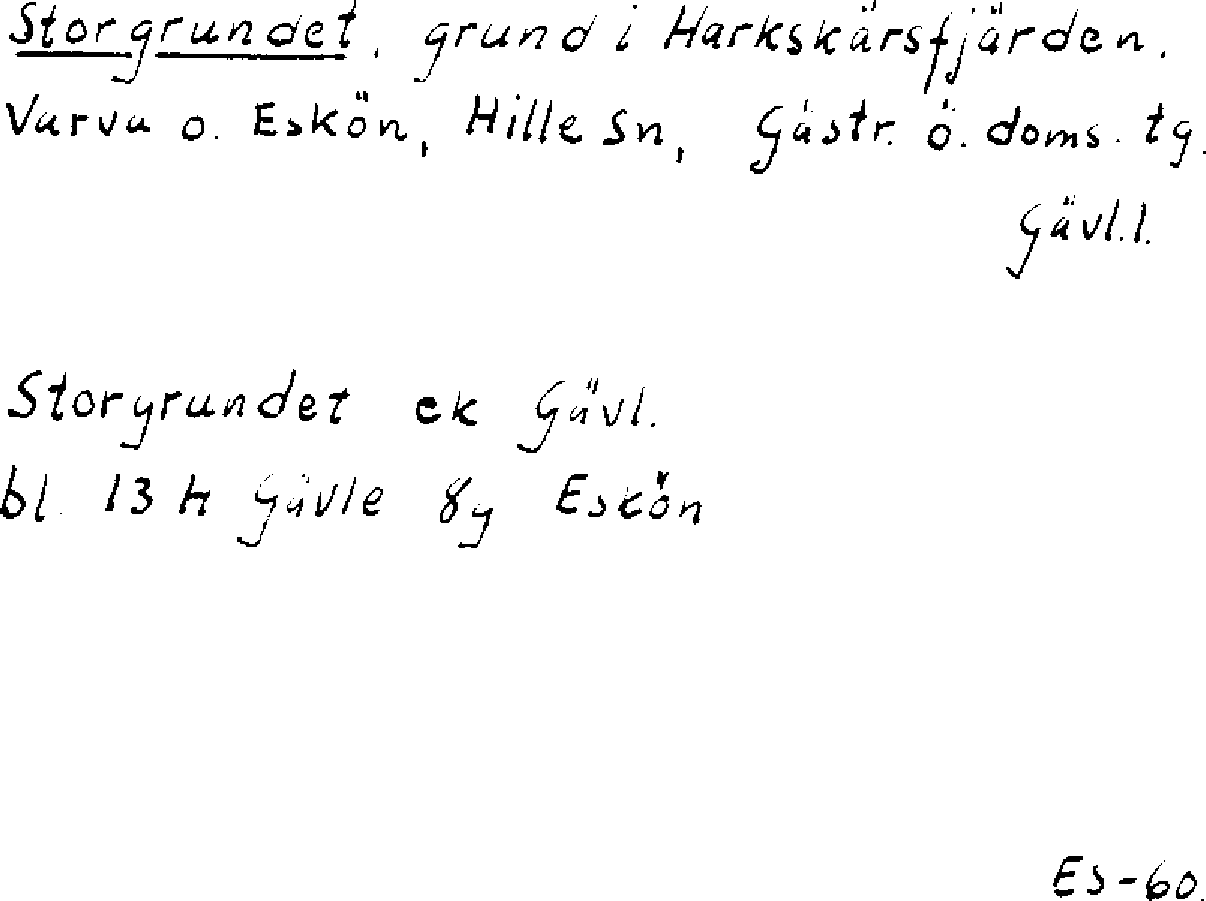 Storgrundet, grund i Harkskärsfjärden.
Varva o. Eskön, Hille sn, Gästr. ö. doms. tg.
Gävl.l.
Storgrundet ek Gävl.
bl. 13 H Gävle 8g Eskön
ES-60.